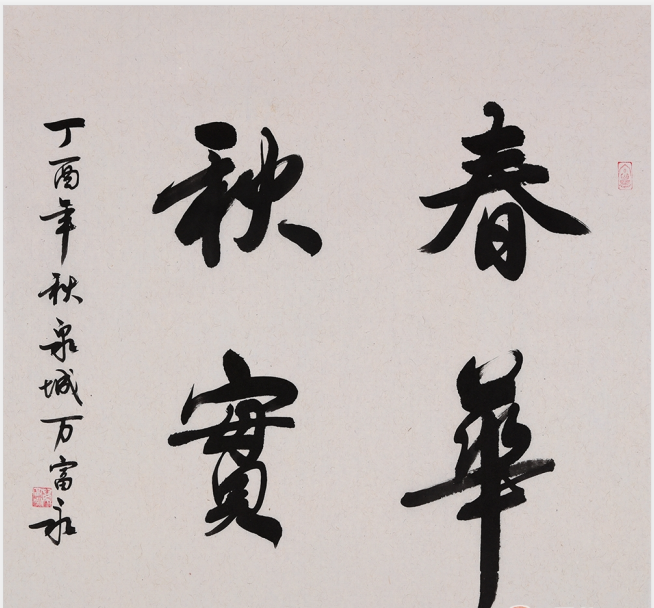 春華
秋實
丁酉年秋泉城万富永